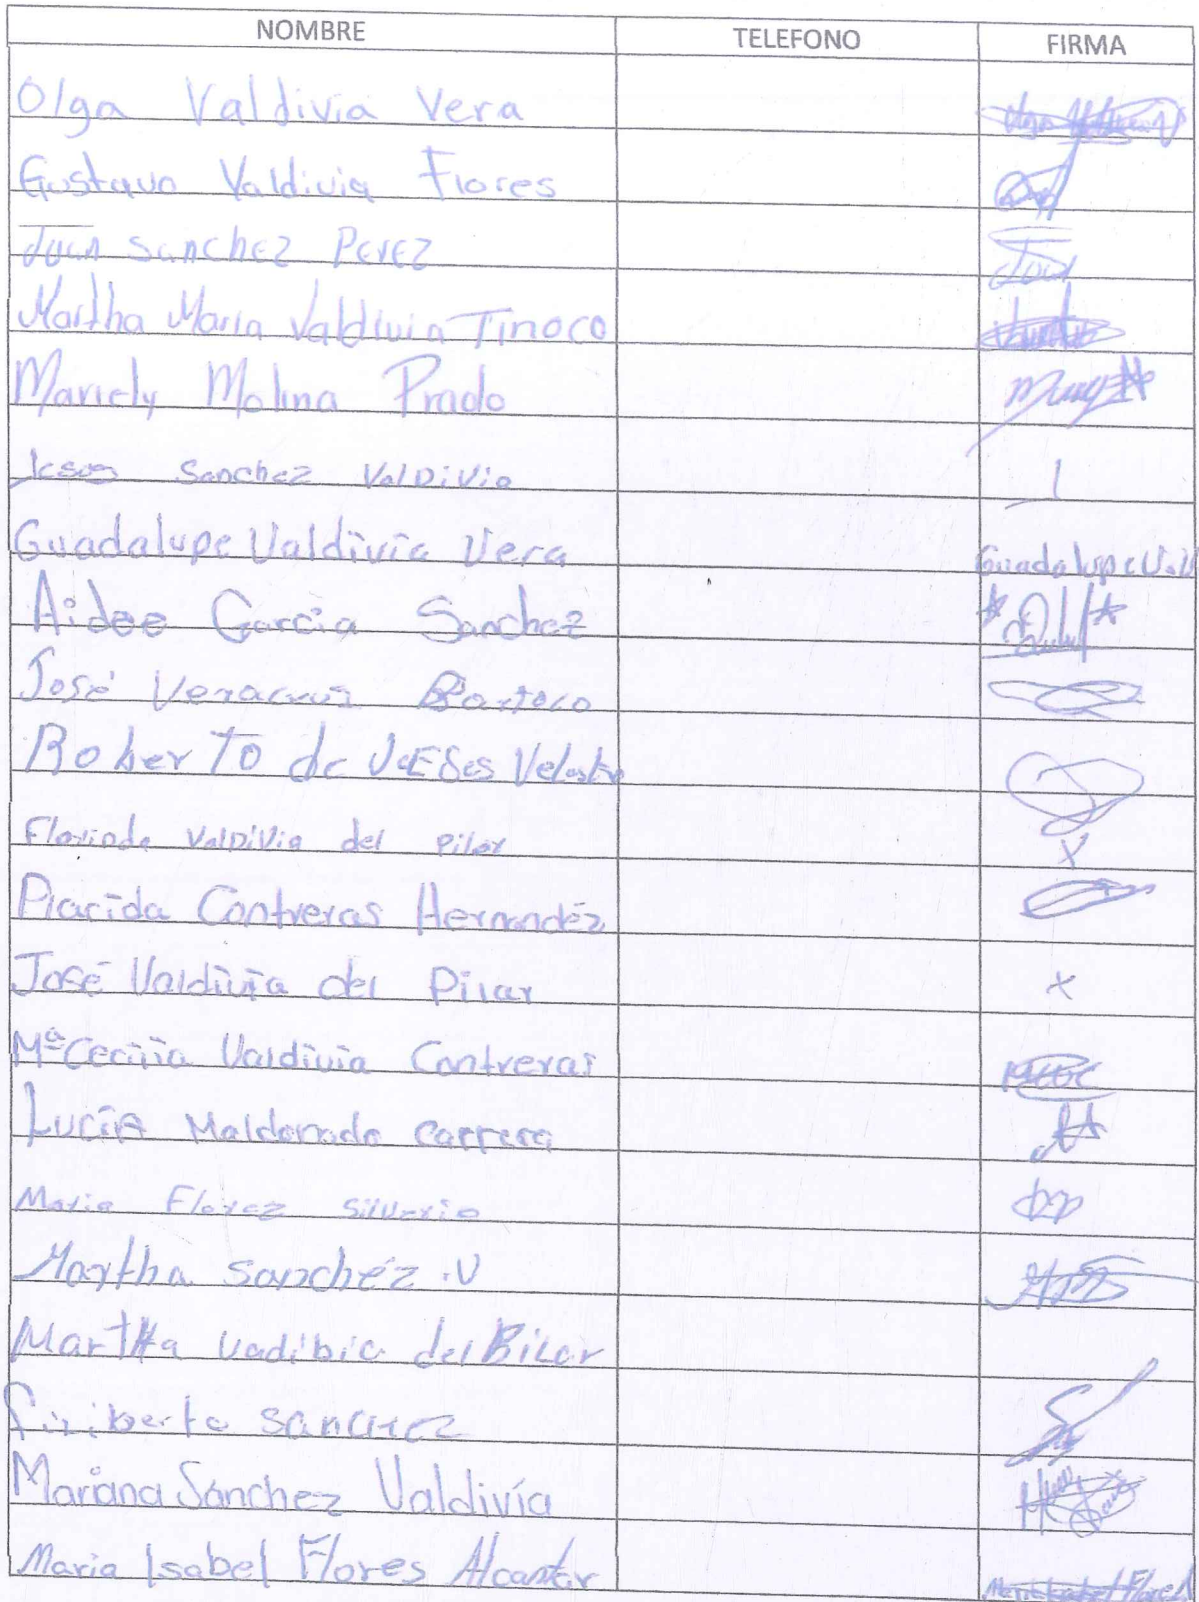 NOMBRE TELEFONO FIRMA
Olga Valdivia Vera
Gustavo Valdivia Flores
Juan Sanchez Perez
Martha Maria Valdivia Tinoco
Mariely Molina Prado
Jesus Sanchez ValDiVia
Guadalupe Valdivia Vera Guadalupe V.V
Aidee Garcia Sanchez
José Veracruz
Roberto de JeEses
Florinda ValDiVia del Pilar X
Placida Contreras Hernandéz
José Valdivia del Pilar x
Mª Cecilia Valdivia Contreras
Lucia Maldonado Carrera
Maria Florez Silverio
Martha Sanchéz .V
Martha Vadibia del Bilar
Firiberto Sanchez
Mariana Sánchez Valdivía
Maria Isabel Flores Alcantar Maria Isabel Flores A